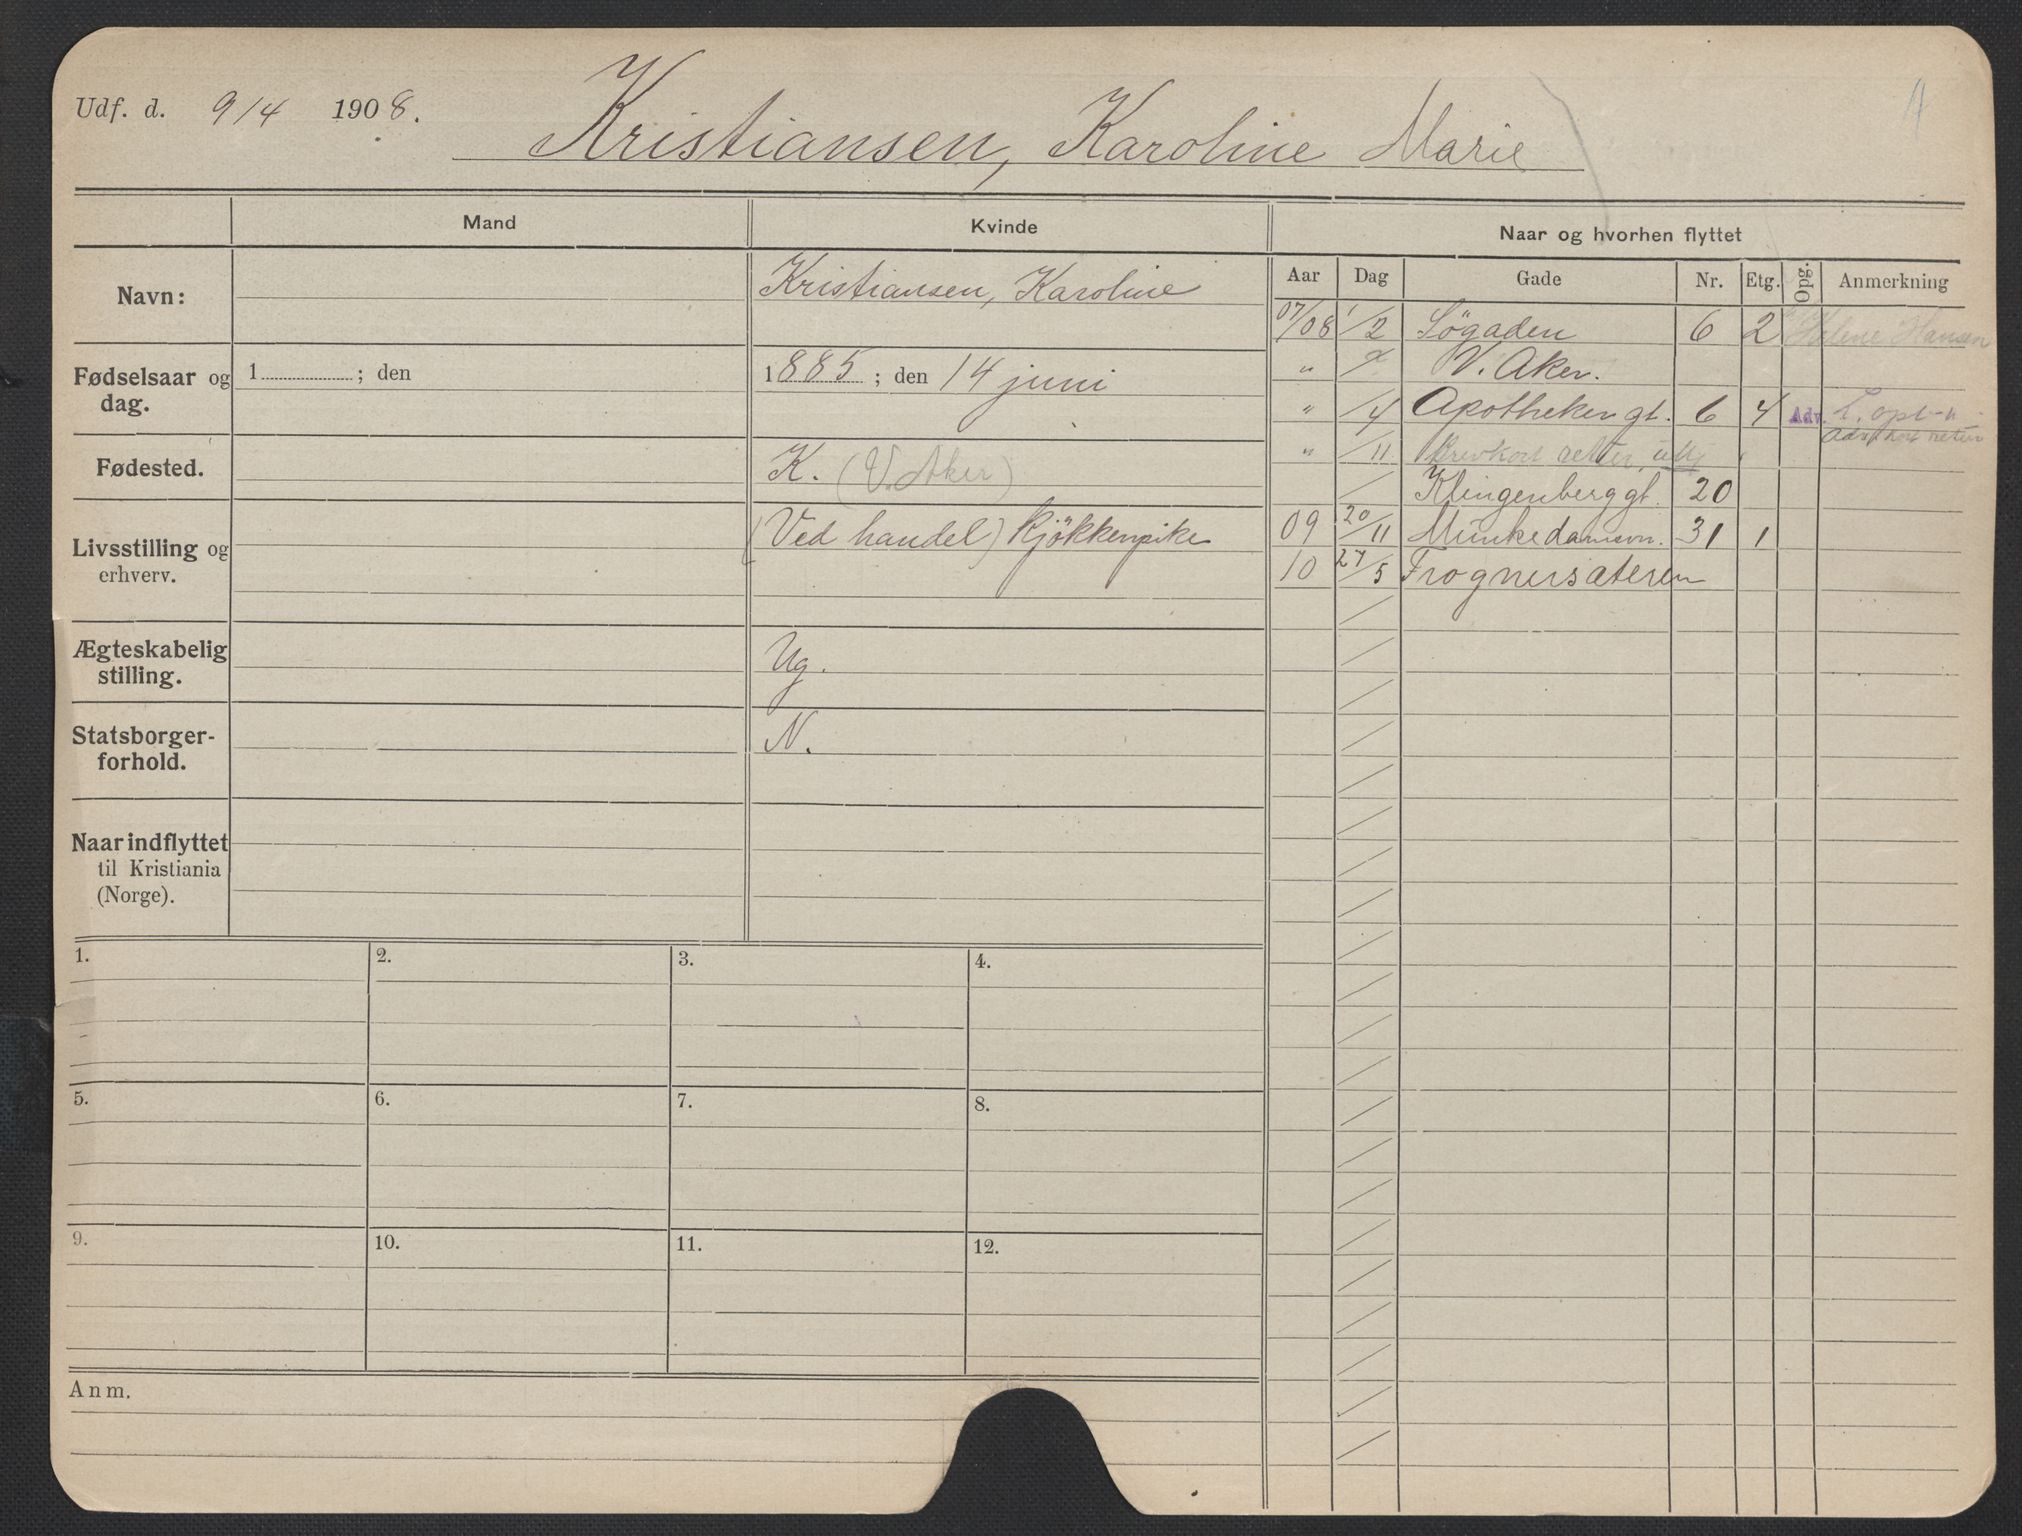 Udf. d. 9/4 1908.
Kristiansen, Karoline Marie
Mand
Kvinde
Naar og hvorhen flyttet
Aar Dag Gade Nr. Etg. Opg. Anmerkning
Navn:
Kristiansen, Karoline
Fødselsaar og dag.
1 ; den
1885 ; den 14 juni
Fødested.
K. (V. Aker)
Livsstilling og erhverv.
(Ved handel) kjökkenpike
Ægteskabelig stilling.
Ug.
Statsborgerforhold.
N.
Naar indflyttet til Kristiania (Norge).
07/08 1/2 Søgaden 6 2 Helene Hansen
" V. Aker.
" /4 Apotheker gt. 6 4 Adv.
" /11 Brevkort retur
/ Klingenberg gt. 20
09 20/11 Munkedamsvn. 31 1
10 27/5 Frognersæteren
1.
2.
3.
4.
5.
6.
7.
8.
9.
10.
11.
12.
Anm.